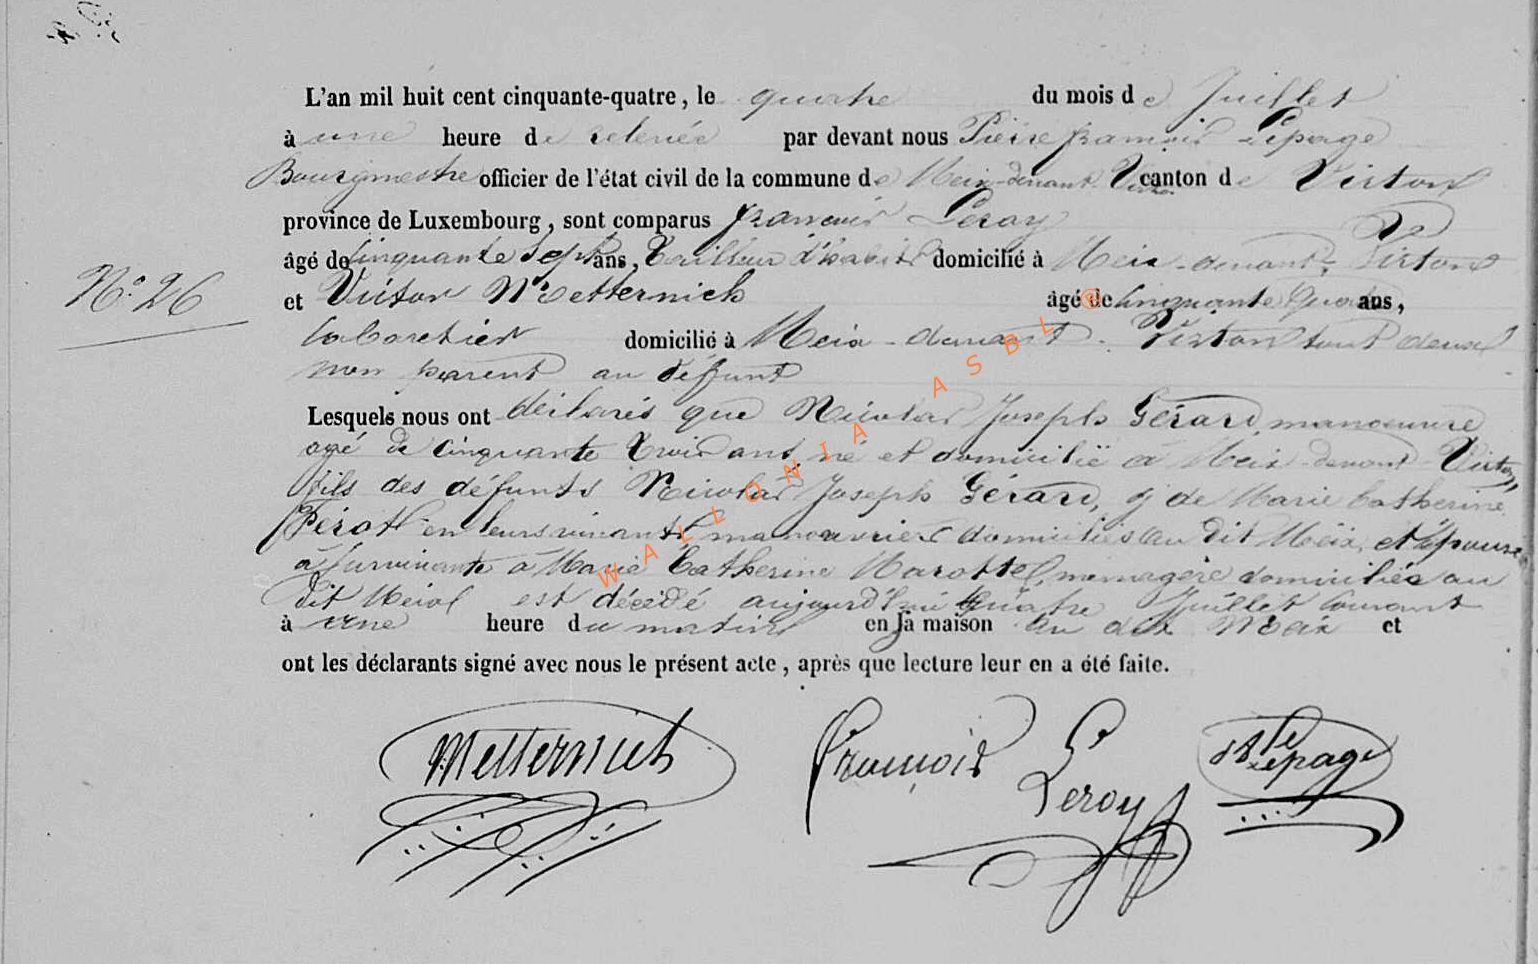 L'an mil huit cent cinquante-quatre, le quatre du mois de Juillet
à une heure de relevée par devant nous Pierre françois Lepage
Bourgmestre officier de l'état civil de la commune de Meix-devant Virton canton de Virton
province de Luxembourg, sont comparus françois Leroy
âgé de cinquante sept ans, tailleur d'habits domicilié à Meix-devant-Virton
N° 26
et Victor Metternich âgé de cinquante quatre ans,
Cabaretier domicilié à Meix-devant-Virton tout deux
non parent au défunt
Lesquels nous ont déclarés que Nicolas Joseph Gérard manoeuvre
agé de cinquante trois ans né et domicilié à Meix-devant-Virton
fils des défunts Nicolas Joseph Gérard, & de Marie Catherine
Pérot en leurs vivants manouvriers domiciliés au dit Meix, et épouse
à survivante à Marie Catherine Marottel menagère domiciliée au
dit Meix est décédé aujourd'hui quatre Juillet courant
à une heure du matin en sa maison au dit Meix et
ont les déclarants signé avec nous le présent acte, après que lecture leur en a été faite.
Metternich
françois Leroy
Lepage
WALLONIA ASBL ®